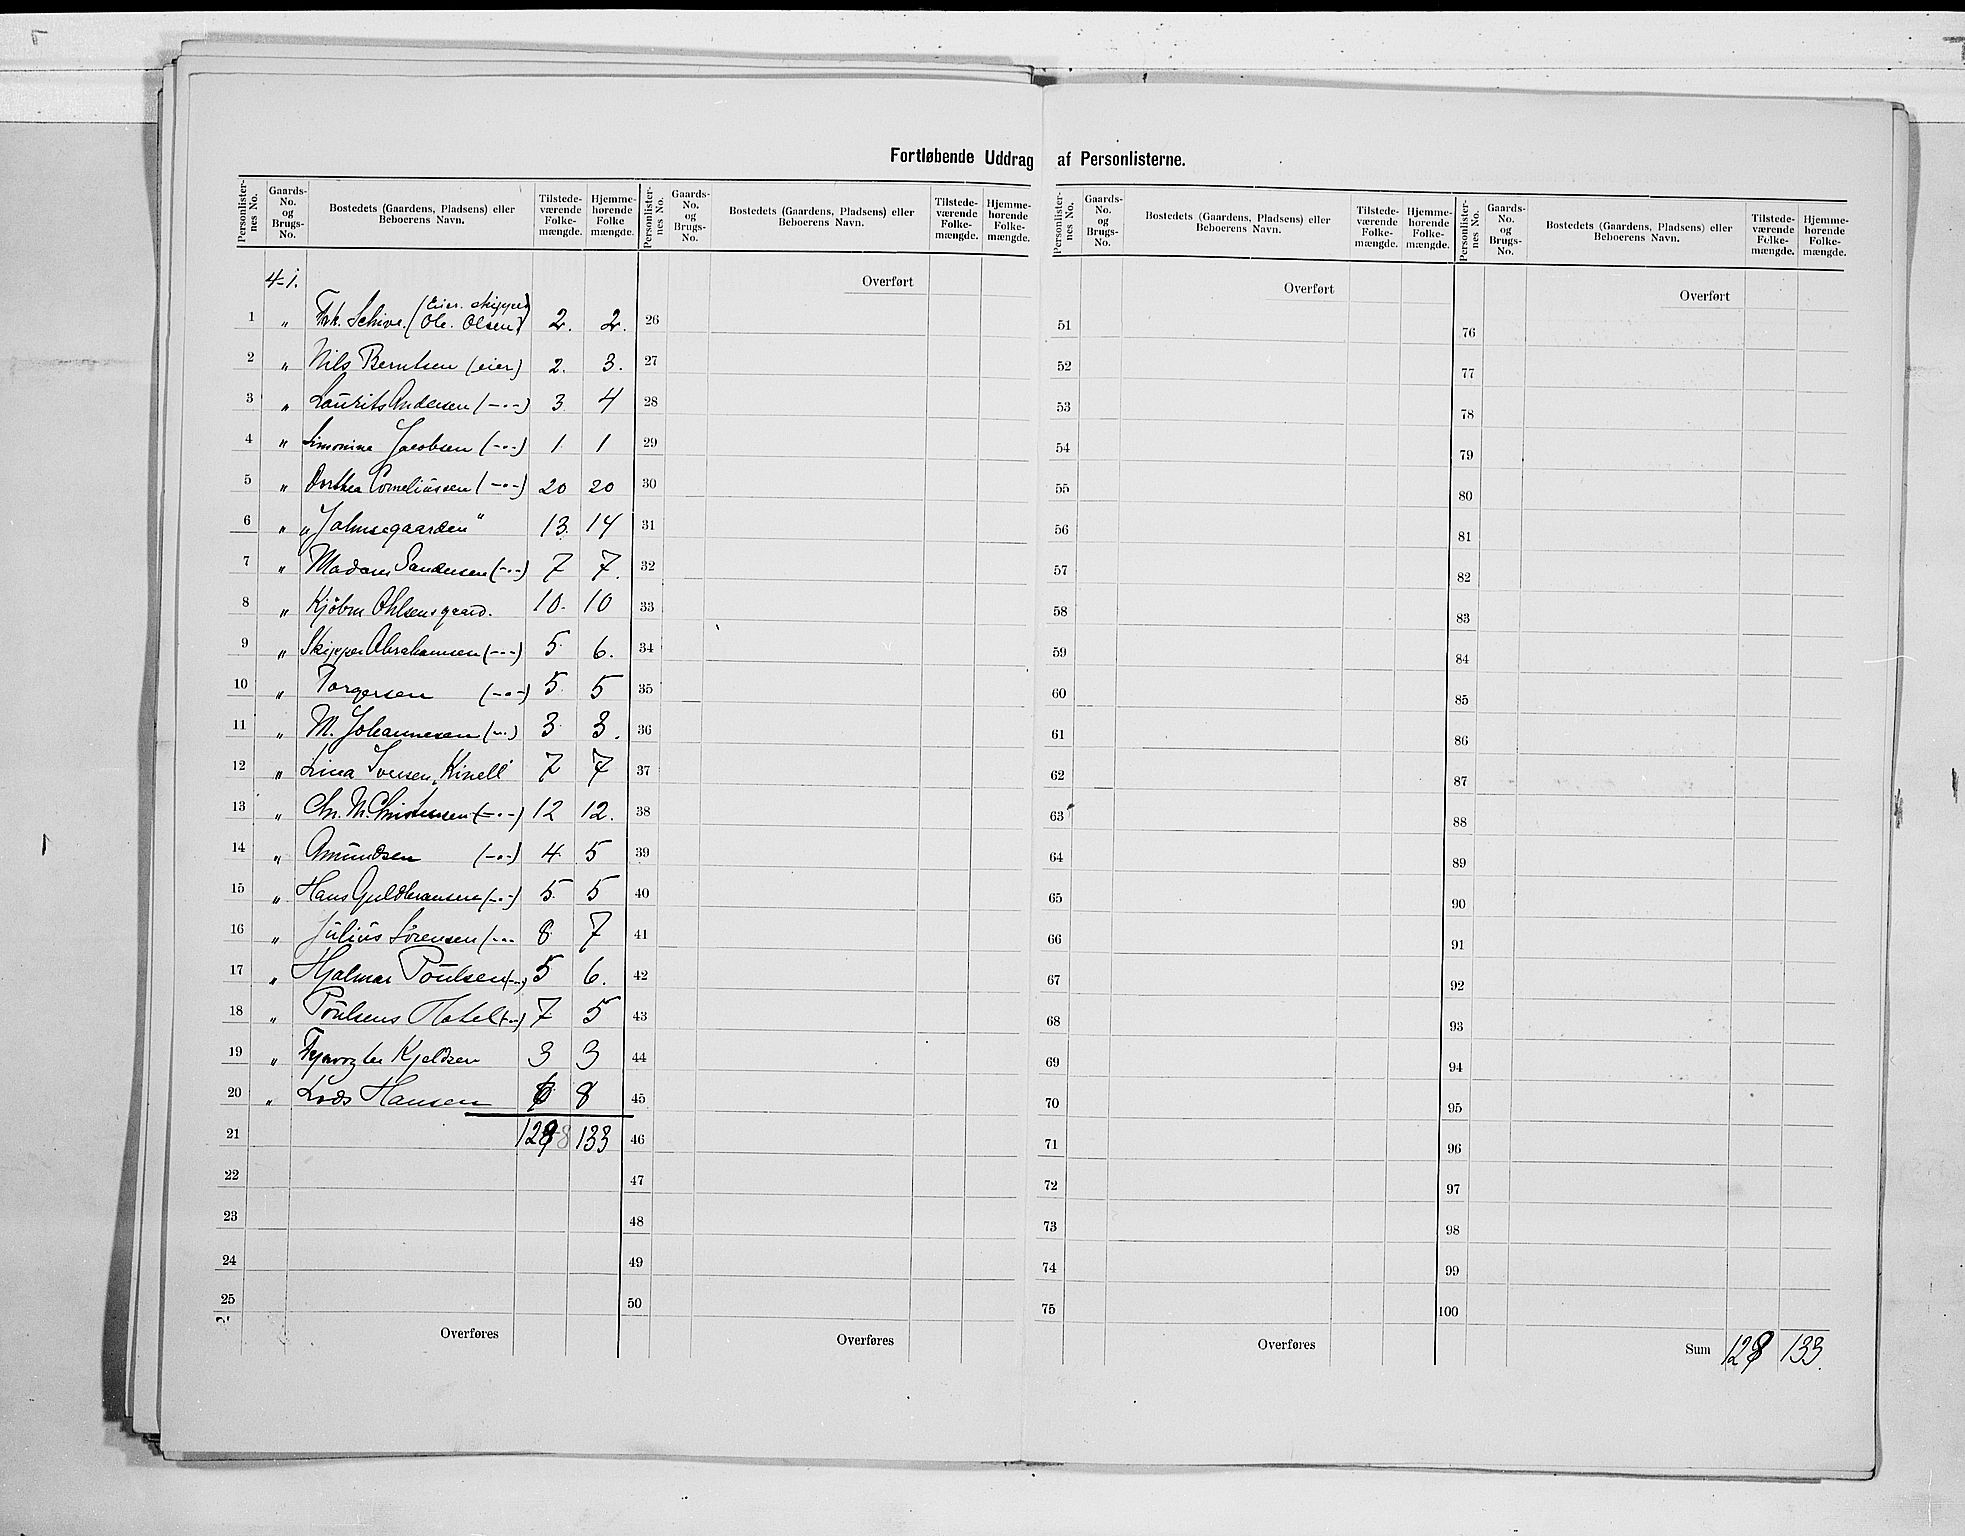 Fortløbende Uddrag af Personlisterne.
Personlister-nes No. Gaards-No. og Brugs-No. Bostedets (Gaardens, Pladsens) eller Beboerens Navn. Tilstede-værende Folke-mængde. Hjemme-hørende Folke mængde.
Personlister-nes No. Gaards-No. og Brugs-No. Bostedets (Gaardens, Pladsens) eller Beboerens Navn. Tilstede-værende Folke-mængde. Hjemme-hørende Folke-mængde.
Personlister-nes No. Gaards-No. og Brugs-No. Bostedets (Gaardens, Pladsens) eller Beboerens Navn. Tilstede-værende Folke-mængde. Hjemme-hørende Folke-mængde.
Personlister-nes No. Gaards-No. og Brugs-No. Bostedets (Gaardens, Pladsens) eller Beboerens Navn. Tilstede-værende Folke-mængde. Hjemme-hørende Folke-mængde.
4-1.
1 " Frk. Schive. (Eier. skipper Ole. Olsen) 2. 2.
2 " Nils Berntsen (eier) 2. 3.
3 " Laurits Andersen (-"-) 3 4
4 " Simonine Jacobsen (-"-) 1. 1
5 " Dorthea Corneliussen (-"-) 20 20
6 " "Jahnsegaarden" 13. 14
7 " Madam Sandersen (-"-) 7 7.
8 " Kjøbm Ohlsensgaard. 10. 10
9 " Skipper Abrahamsen (-"-) 5 6.
10 " Torgersen (-"-) 5. 5
11 " M. Johannesen (-"-) 3 3.
12 " Lina Iversen, Kinell 7 7
13 " Chr. M. Christensen (-"-) 12 12.
14 " Amundsen (-"-) 4 5
15 " Hans Guldbransen (-"-) 5. 5
16 " Julius Sørensen (-"- 8 7
17 " Hjalmar Poulsen (-"-) 5 6.
18 " Poulsens Hotel (-"-) 7 5
19 " Fyrvogter Kjeldsen 3 3
20 " Lods Hansen 6 8
21 128 133
22
23
24
25
Overføres
Overført
26
27
28
29
30
31
32
33
34
35
36
37
38
39
40
41
42
43
44
45
46
47
48
49
50
Overføres
Overført
51
52
53
54
55
56
57
58
59
60
61
62
63
64
65
66
67
68
69
70
71
72
73
74
75
Overføres
Overført
76
77
78
79
80
81
82
83
84
85
86
87
88
89
90
91
92
93
94
95
96
97
98
99
100
Sum 128 133.